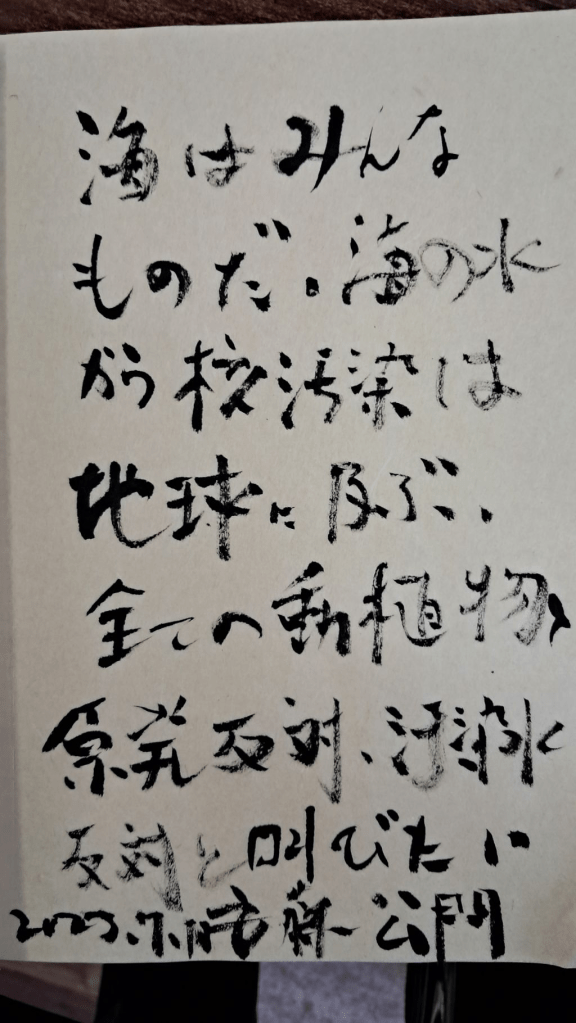 海はみんな
ものだ。海の水
から核汚染は
地球に及ぶ、
全ての動植物、
原発反対、汚染水
反対と叫びたい
斎藤公門